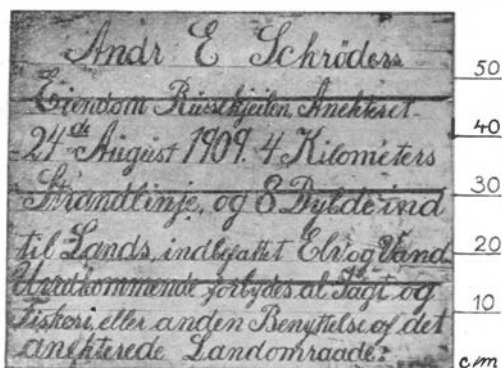 Andr E Schröders
Eiendom Russekjeilen, Anekteret
24de August 1909. 4 Kilometers
Strandlinje, og 8 Dybde ind
til Lands, indbefattet Elv og Vand
Uvedkommende forbydes al Jagt og
Fiskeri, eller anden Benyttelse af det
anekterede Landomraade.
50
40
30
20
10
c/m